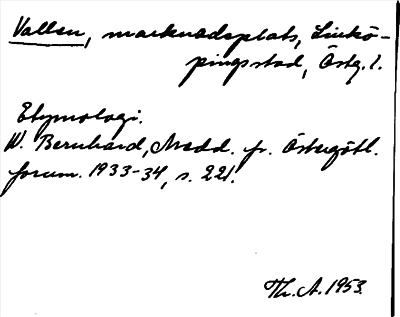 Vallen, marknadsplats, Linkö-
pingsstad, Östg. l.
Etymologi.
W. Bernhard, Medd. fr. Östergötl.
forum. 1933-34, s. 221.
Th. A. 1953.